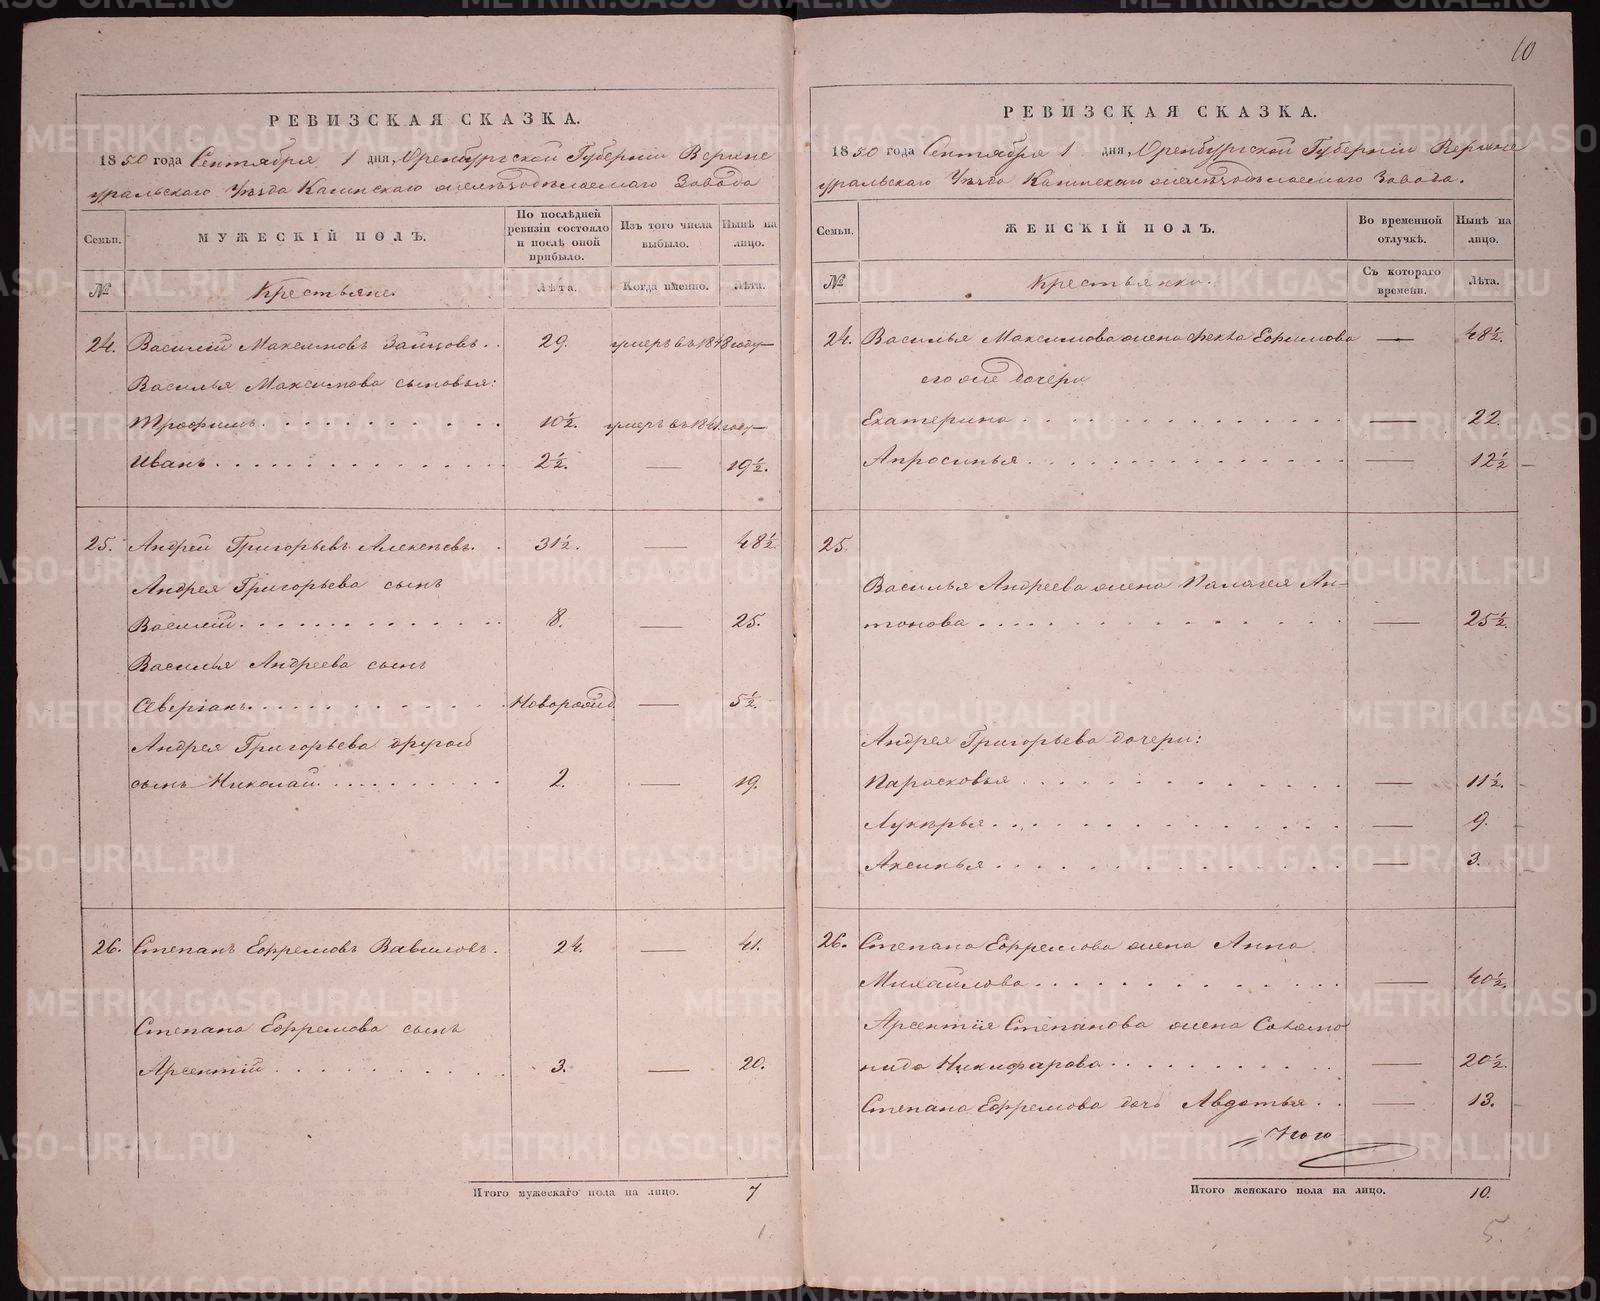 10
РЕВИЗСКАЯ СКАЗКА.
1850 года Сентября 1 дня, Оренбургской Губерніи Верхне
уральскаго Уѣзда Кагинскаго желѣзодѣлаемаго Завода
Семьи.
МУЖЕСКІЙ ПОЛЪ.
По послѣдней ревизіи состояло и послѣ оной прибыло.
Изъ того числа выбыло.
Нынѣ на лицо.
№
Крестьяне.
Лѣта.
Когда именно.
Лѣта.
24. Василій Максимовъ Зайцовъ. . 29. умеръ въ 1848 году
Василья Максимова сыновья:
Трофимъ. 10½. умеръ въ 1841 году
Иванъ. 2½. — 19½.
25. Андрей Григорьевъ Алексѣевъ. . 31½. — 48½
Андрея Григорьева сынъ
Василій. 8. — 25.
Василья Андреева сынъ
Северіанъ. Новорожд — 5½.
Андрея Григорьева другой
сынъ Николай. 2. — 19.
26. Степанъ Ефремовъ Вавиловъ. 24. — 41.
Степана Ефремова сынъ
Арсентій. 3. — 20.
Итого мужескаго пола на лицо. 7
1.
РЕВИЗСКАЯ СКАЗКА.
1850 года Сентября 1 дня, Оренбургской Губерніи Верхне
уральскаго Уѣзда Кагинскаго желѣзодѣлаемаго Завода.
Семьи.
ЖЕНСКІЙ ПОЛЪ.
Во временной отлучкѣ.
Нынѣ на лицо.
№
Крестьянки.
Съ котораго времени.
Лѣта.
24. Василья Максимова жена Фекла Ефимова — 48½.
его же дочери
Екатерина — 22.
Апросинья — 12½
25.
Василья Андреева жена Палагея Ан-
тонова — 25½.
Андрея Григорьева дочери:
Парасковья — 11½.
Лукерья — 9.
Аксинья — 3.
26. Степана Ефремова жена Анна
Михайлова — 40½.
Арсентія Степанова жена Соломо
нида Никифарова — 20½.
Степана Ефремова дочь Авдотья. . — 13.
Итого
Итого женскаго пола на лицо. 10.
5.
METRIKI.GASO-URAL.RU